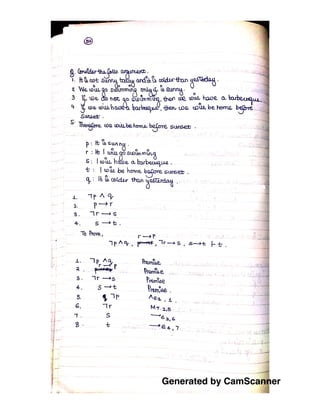 Q. Consider the following argument.
1. It is not sunny today and it is colder than yesterday.
2. We will go swimming only if it is sunny.
3. If we do not go swimming, then we will have a barbeque.
4. If we will have a barbeque, then we will be home before
sunset.
5. Therefore we will be home before sunset.
p : It is sunny.
r : I will go swimming
s : I will have a barbeque.
t : I will be home before sunset.
q : It is colder than yesterday.
1. ¬p ∧ q
2. p → r
3. ¬r → s
4. s → t.
To Prove,
r → p
¬p ∧ q, ¬r → s, s → t ⊢ t.
1. ¬p ∧ q Premise
2. r → p Premise
3. ¬r → s Premise
4. s → t Premise.
5. ¬p ∧e1, 1.
6. ¬r M.T. 2,5
7. s →e 3,6
8. t →e 4,7.
Generated by CamScanner